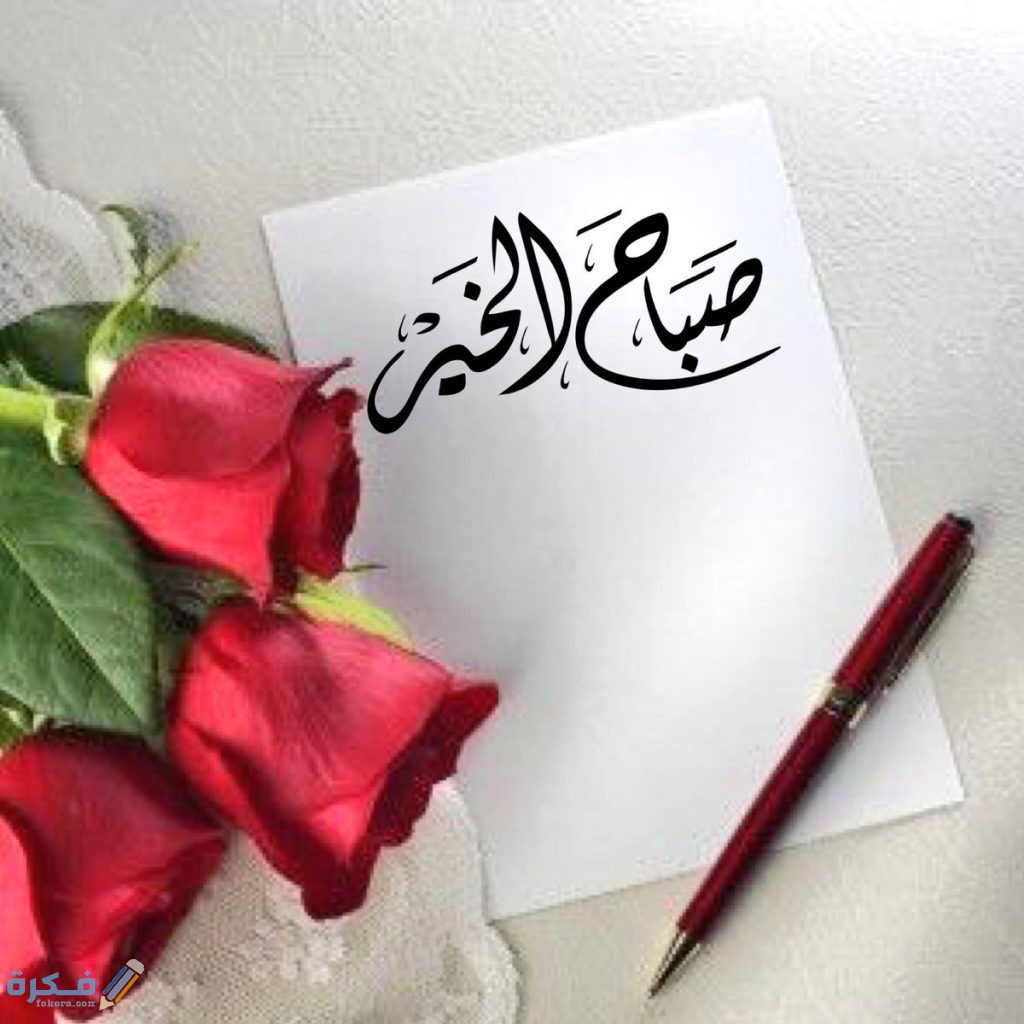 صَبَاح الخَيْر
فكرة
fokera.com